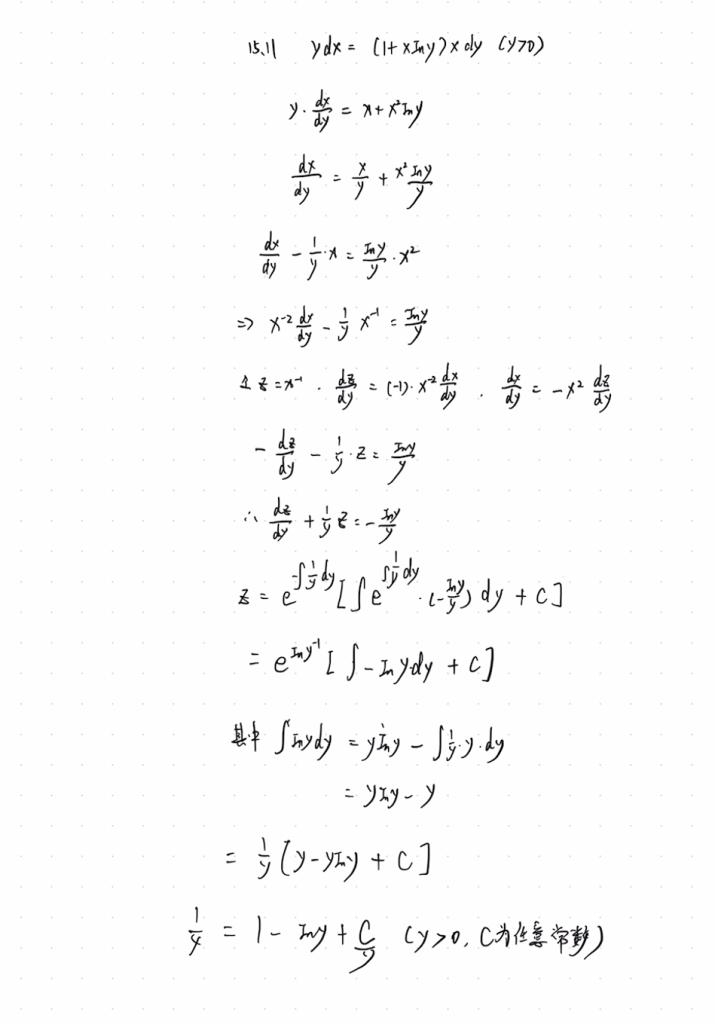 15.11 ydx = (1+xlny)x dy (y>0)
y·dx/dy = x+x²lny
dx/dy = x/y + x² lny/y
dx/dy - 1/y·x = lny/y·x²
=> x⁻² dx/dy - 1/y x⁻¹ = lny/y
令 z=x⁻¹. dz/dy = (-1)·x⁻² dx/dy. dx/dy = -x² dz/dy
- dz/dy - 1/y·z = lny/y
∴ dz/dy + 1/y z = - lny/y
z = e^{-∫1/y dy} [∫e^{∫1/y dy}·(-lny/y) dy + C]
= e^{lny⁻¹} [∫-lnydy + C]
其中 ∫lnydy = ylny - ∫1/y·y·dy
= ylny - y
= 1/y [y-ylny + C]
1/x = 1 - lny + C/y (y>0, C为任意常数)